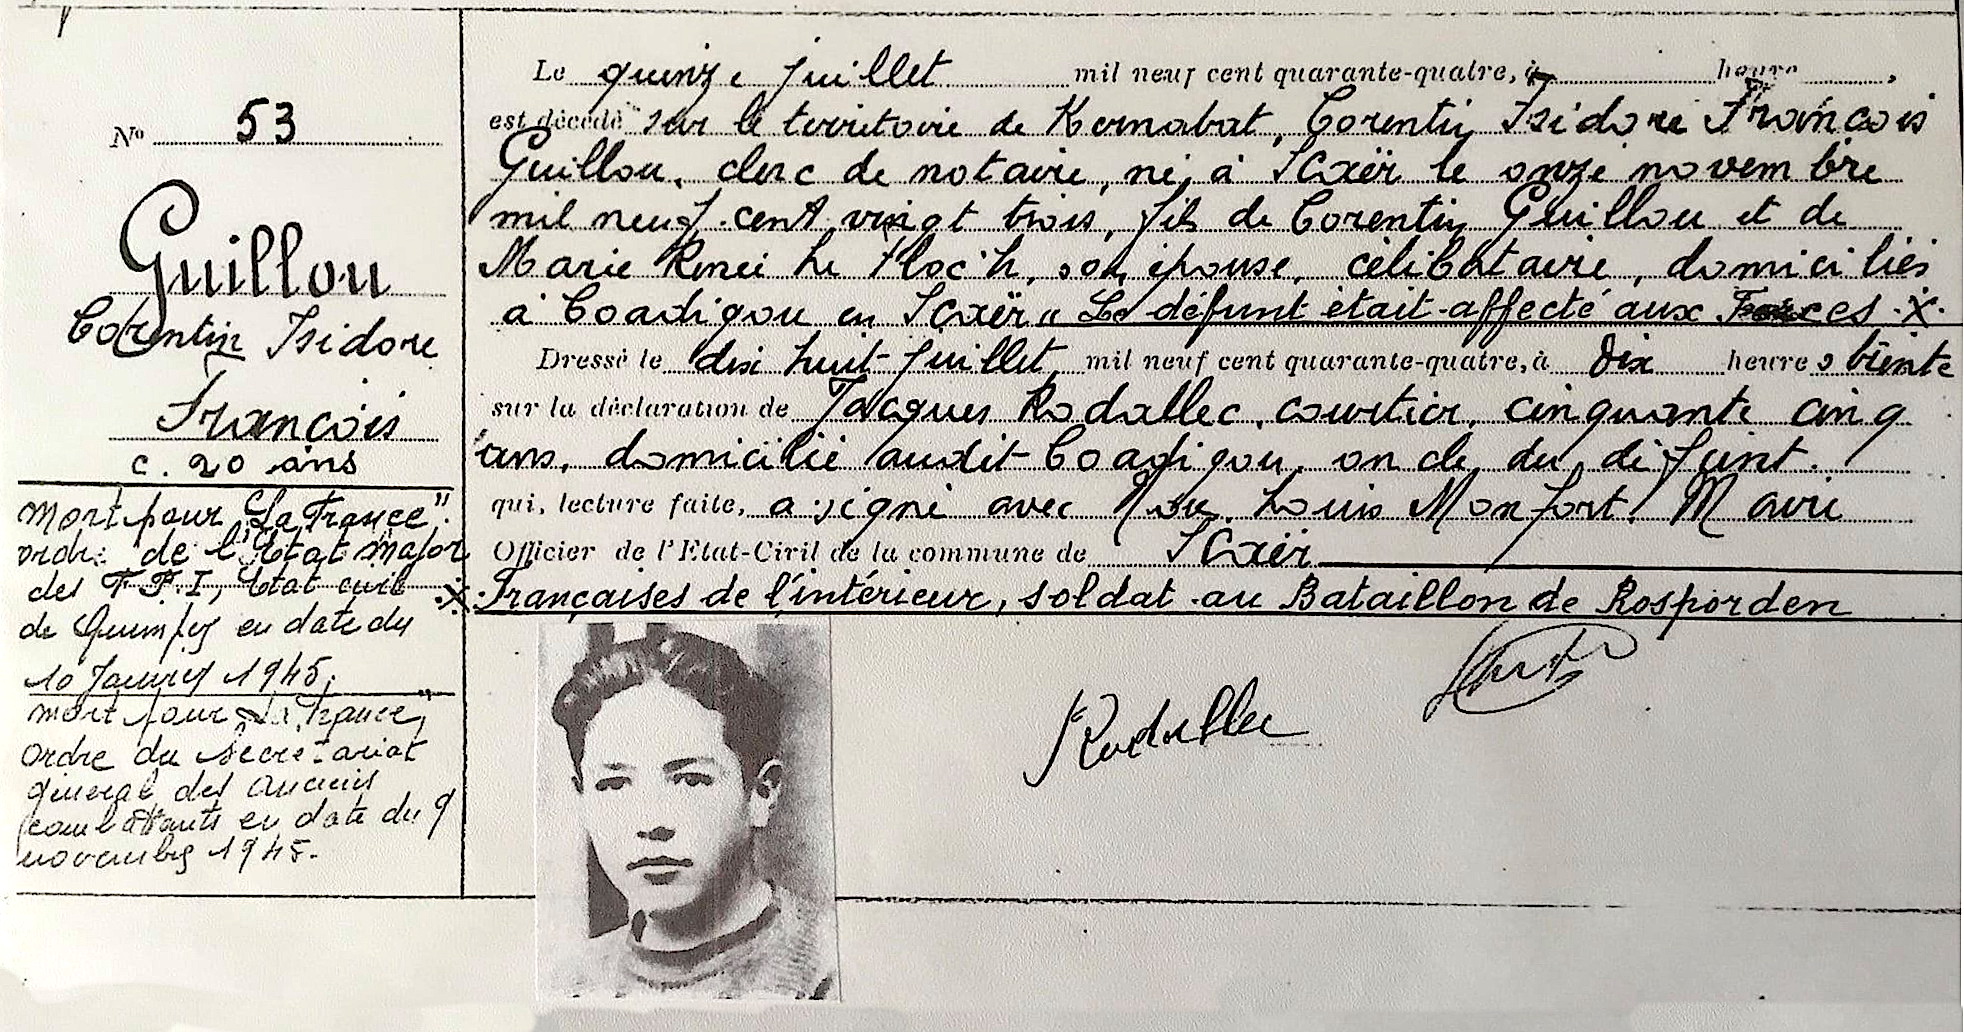 N° 53
Guillou
Corentin Isidore
François
c. 20 ans
mort pour "La France"
ordre de l'Etat Major
des F F I, Etat civil
de Quimper en date du
10 Janvier 1945.
mort pour La France"
ordre du Secrétariat
général des anciens
combattants en date du 9
novembre 1945.
Le quinze juillet mil neuf cent quarante-quatre, à heure ,
est décédé sur le territoire de Kernabat, Corentin Isidore François
Guillou, clerc de notaire, né à Scaër le onze novembre
mil neuf cent vingt trois, fils de Corentin Guillou et de
Marie Renée Le Floc'h, son épouse, célibataire, domiciliés
à Coadigou en Scaër " Le défunt était affecté aux Forces .X.
Dressé le dix huit juillet mil neuf cent quarante-quatre, à dix heures trente
sur la déclaration de Jacques Rodallec, courtier, cinquante cinq
ans, domicilié audit Coadigou, oncle du défunt.
qui, lecture faite, a signé avec Nous, Louis Monfort, Maire
Officier de l'Etat-Civil de la commune de Scaër
.X. Françaises de l'intérieur, soldat au Bataillon de Rosporden
Rodallec